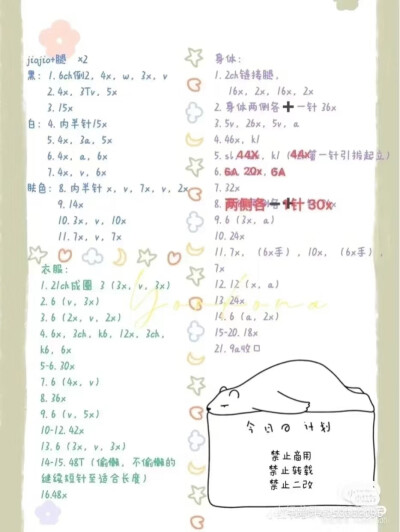 jiajiao+腿 ×2
黑: 1. 6ch倒2, 4x, w, 3x, v
2. 4x, 3Tv, 5x
3. 15x
白: 4. 内羊针15x
5. 4x, 3a, 5x
6. 4x, a, 6x
7. 4x, v, 6x
肤色: 8. 内羊针 x, v, 7x, v, 2x
9. 14x
10. 3x, v, 10x
11. 7x, v, 7x
衣服:
1. 21ch成圈 3 (3x, v, 3x)
2. 6 (v, 3x)
3. 6 (2x, v, 2x)
4. 6x, 3ch, k6, 12x, 3ch,
k6, 6x
5-6. 30x
7. 6 (4x, v)
8. 36x
9. 6 (v, 5x)
10-12. 42x
13. 6 (3x, v, 3x)
14-15. 48T (偷懒, 不偷懒的
继续短针至适合长度)
16. 48x
身体:
1. 2ch链接腿,
16x, 2x, 16x, 2x
2. 身体两侧各➕一针 36x
3. 5v, 26x, 5v, a
4. 46x, kl
5. sl 44X, kl (第一针引拔起立)
6. 6A, 20x, 6A
7. 32x
8. 两侧各➕1针 30x
9. 6 (3x, a)
10. 24x
11. 7x, (6x手), 10x, (6x手),
7x
12. 12 (x, a)
13. 24x
14. 6 (a, 2x)
15-20. 18x
21. 9a收口
今日の计划
禁止商用
禁止转载
禁止二改